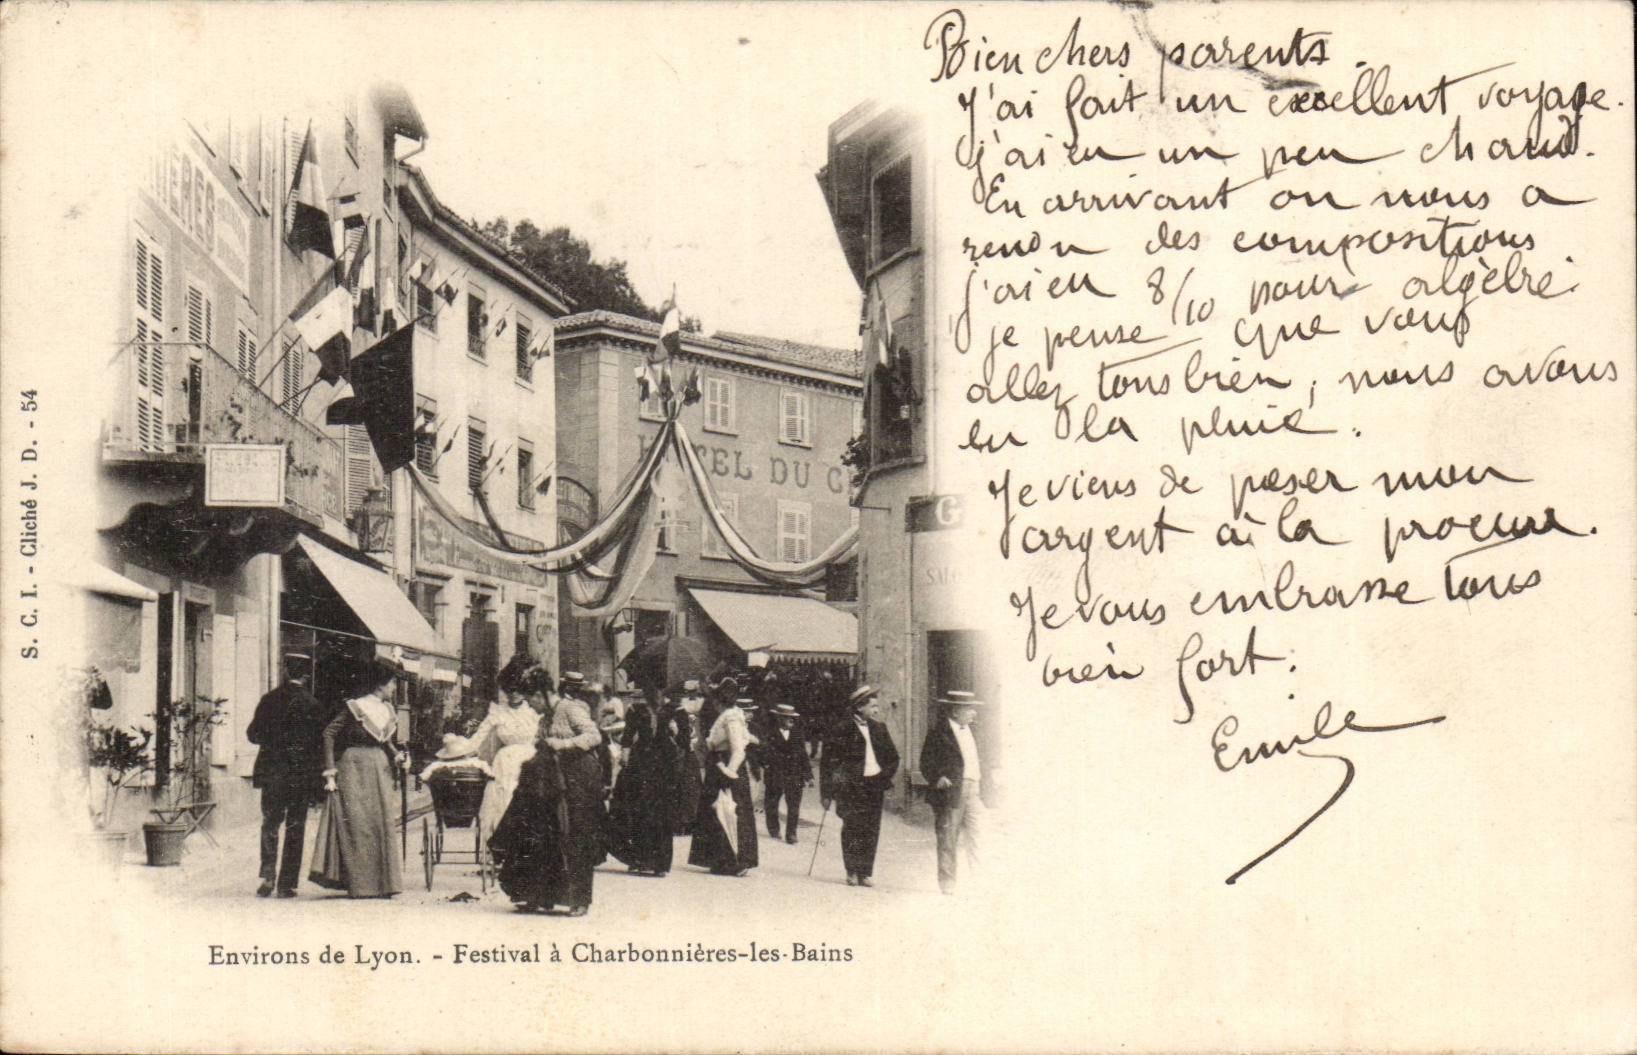 Bien chers parents.
J'ai fait un excellent voyage.
j'ai eu un peu chaud.
En arrivant on nous a
rendu des compositions
j'ai eu 8/10 pour algèbre.
je pense que vous
allez tous bien, nous avons
eu la pluie.
Je viens de poser mon
argent à la procure.
Je vous embrasse tous
bien fort.
Emile
HOTEL DU C
G
S. C. I. - Cliché J. D. - 54
Environs de Lyon. - Festival à Charbonnières-les-Bains